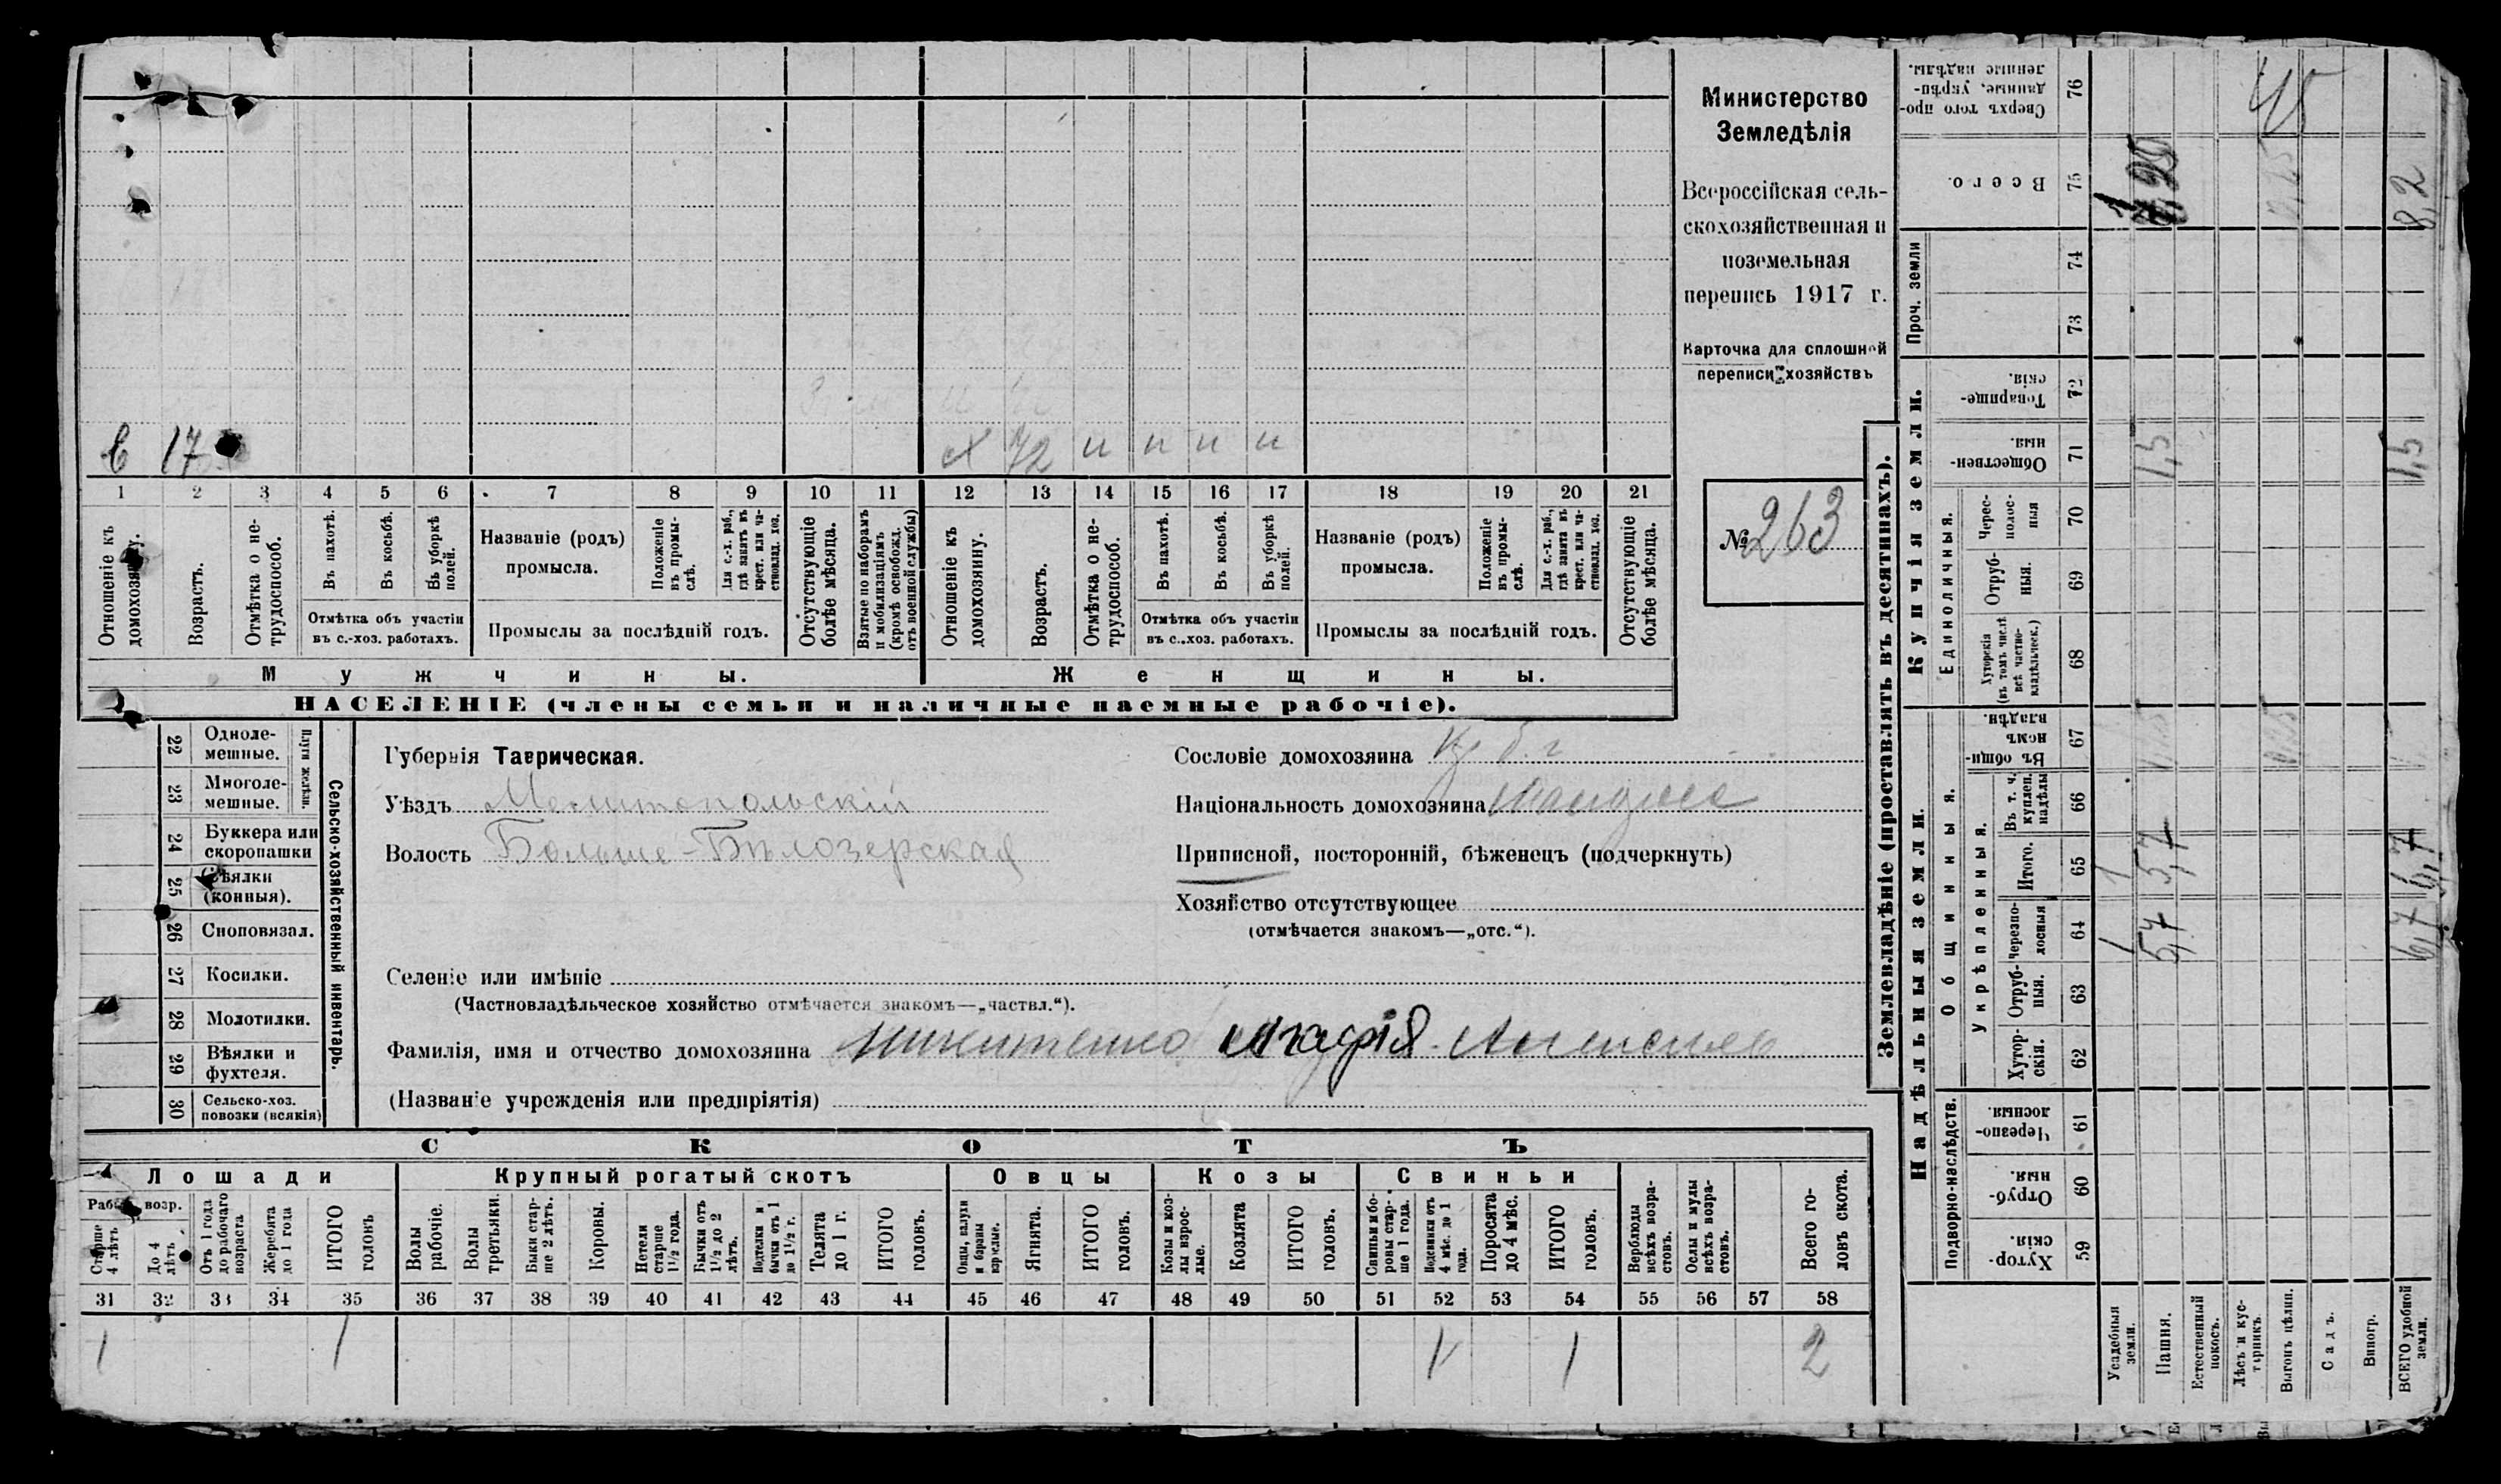 Министерство
Земледѣлія
Всероссійская сель-
скохозяйственная и
поземельная
перепись 1917 г.
Карточка для сплошной
переписи хозяйствъ
№ 263
17 72 и и и и
1 2 3 4 5 6 7 8 9 10 11 12 13 14 15 16 17 18 19 20 21
Отношеніе къ домохозяину.
Возрастъ.
Отмѣтка о не-трудоспособ.
Въ пахотѣ.
Въ косьбѣ.
Въ уборкѣ полей.
Отмѣтка объ участіи
въ с.-хоз. работахъ.
Названіе (родъ)
промысла.
Положеніе въ промы-слѣ.
Для с.-х. раб., гдѣ занятъ въ крест. или ча-стновлад. хоз.
Промыслы за послѣдній годъ.
Отсутствующіе болѣе мѣсяца.
Взятые по наборамъ и мобилизаціямъ (кромѣ освобожд. отъ военной службы)
Отношеніе къ домохозяину.
Возрастъ.
Отмѣтка о не-трудоспособ.
Въ пахотѣ.
Въ косьбѣ.
Въ уборкѣ полей.
Отмѣтка объ участіи
въ с.-хоз. работахъ.
Названіе (родъ)
промысла.
Положеніе въ промы-слѣ.
Для с.-х. раб., гдѣ занята въ крест. или ча-стновлад. хоз.
Промыслы за послѣдній годъ.
Отсутствующіе болѣе мѣсяца.
Мужчины. Женщины.
НАСЕЛЕНІЕ (члены семьи и наличные наемные рабочіе).
22 Одноле-мешные.
23 Многоле-мешные.
Плуги желѣзн.
24 Буккера или скоропашки
25 Сѣялки (конныя).
26 Сноповязал.
27 Косилки.
28 Молотилки.
29 Вѣялки и фухтеля.
30 Сельско-хоз. повозки (всякія)
Сельско-хозяйственный инвентарь.
Губернія Таврическая.
Уѣздъ Мелитопольскій
Волость Больше-Бѣлозерская
Сословіе домохозяина
Національность домохозяина
Приписной, посторонній, бѣженецъ (подчеркнуть)
Хозяйство отсутствующее
(отмѣчается знакомъ—„отс.“).
Селеніе или имѣніе
(Частновладѣльческое хозяйство отмѣчается знакомъ—„частвл.“).
Фамилія, имя и отчество домохозяина Никитенко Агафія
(Названіе учрежденія или предпріятія)
СКОТЪ
Лошади Крупный рогатый скотъ Овцы Козы Свиньи
Рабоч. возр.
Старше 4 лѣтъ
До 4 лѣтъ
Отъ 1 года до рабочаго возраста
Жеребята до 1 года
ИТОГО головъ
Волы рабочіе.
Волы третьяки.
Быки стар-ше 2 лѣтъ.
Коровы.
Нетели старше 1½ года.
Бычки отъ 1½ до 2 лѣтъ.
Подтелки и бычки отъ 1 до 1½ г.
Телята до 1 г.
ИТОГО головъ.
Овцы, валухи и бараны взрослые.
Ягнята.
ИТОГО головъ.
Козы и коз-лы взрос-лые.
Козлята
ИТОГО головъ.
Свиньи и бо-ровы стар-ше 1 года.
Подсвинки отъ 4 мѣс. до 1 года.
Поросята до 4 мѣс.
ИТОГО головъ.
Верблюды всѣхъ возра-стовъ.
Ослы и мулы всѣхъ возра-стовъ.
Всего го-ловъ скота.
31 32 33 34 35 36 37 38 39 40 41 42 43 44 45 46 47 48 49 50 51 52 53 54 55 56 57 58
1 1 1 1 2
Землевладѣніе (проставлять въ десятинахъ).
Надѣльныя земли. Купчія земли. Проч. земли
Подворно-наслѣдств.
Общинныя.
Укрѣпленныя.
Единоличныя.
59 Хутор-скія.
60 Отруб-ныя.
61 Черезпо-лосныя.
62 Хутор-скія.
63 Отруб-ныя.
64 Черезпо-лосныя 1 5,7 6,7
65 Итого. 1 5,7 6,7
66 Въ т. ч. куплен. надѣлы
67 Въ общи-номъ владѣн.
68 Хуторскія (въ томъ числѣ всѣ частно-владѣльческ.)
69 Отруб-ныя.
70 Черес-полос-ныя
71 Обществен-ныя. 1,5 1,5
72 Товарище-скія.
73
74
75 Всего. 8,2
76 Сверхъ того про-данные, укрѣп-ленные надѣлы.
Усадебныя земли.
Пашня.
Естественный покосъ.
Лѣсъ и кус-тарникъ.
Выгонъ цѣлин.
Садъ.
Виногр.
ВСЕГО удобной земли.